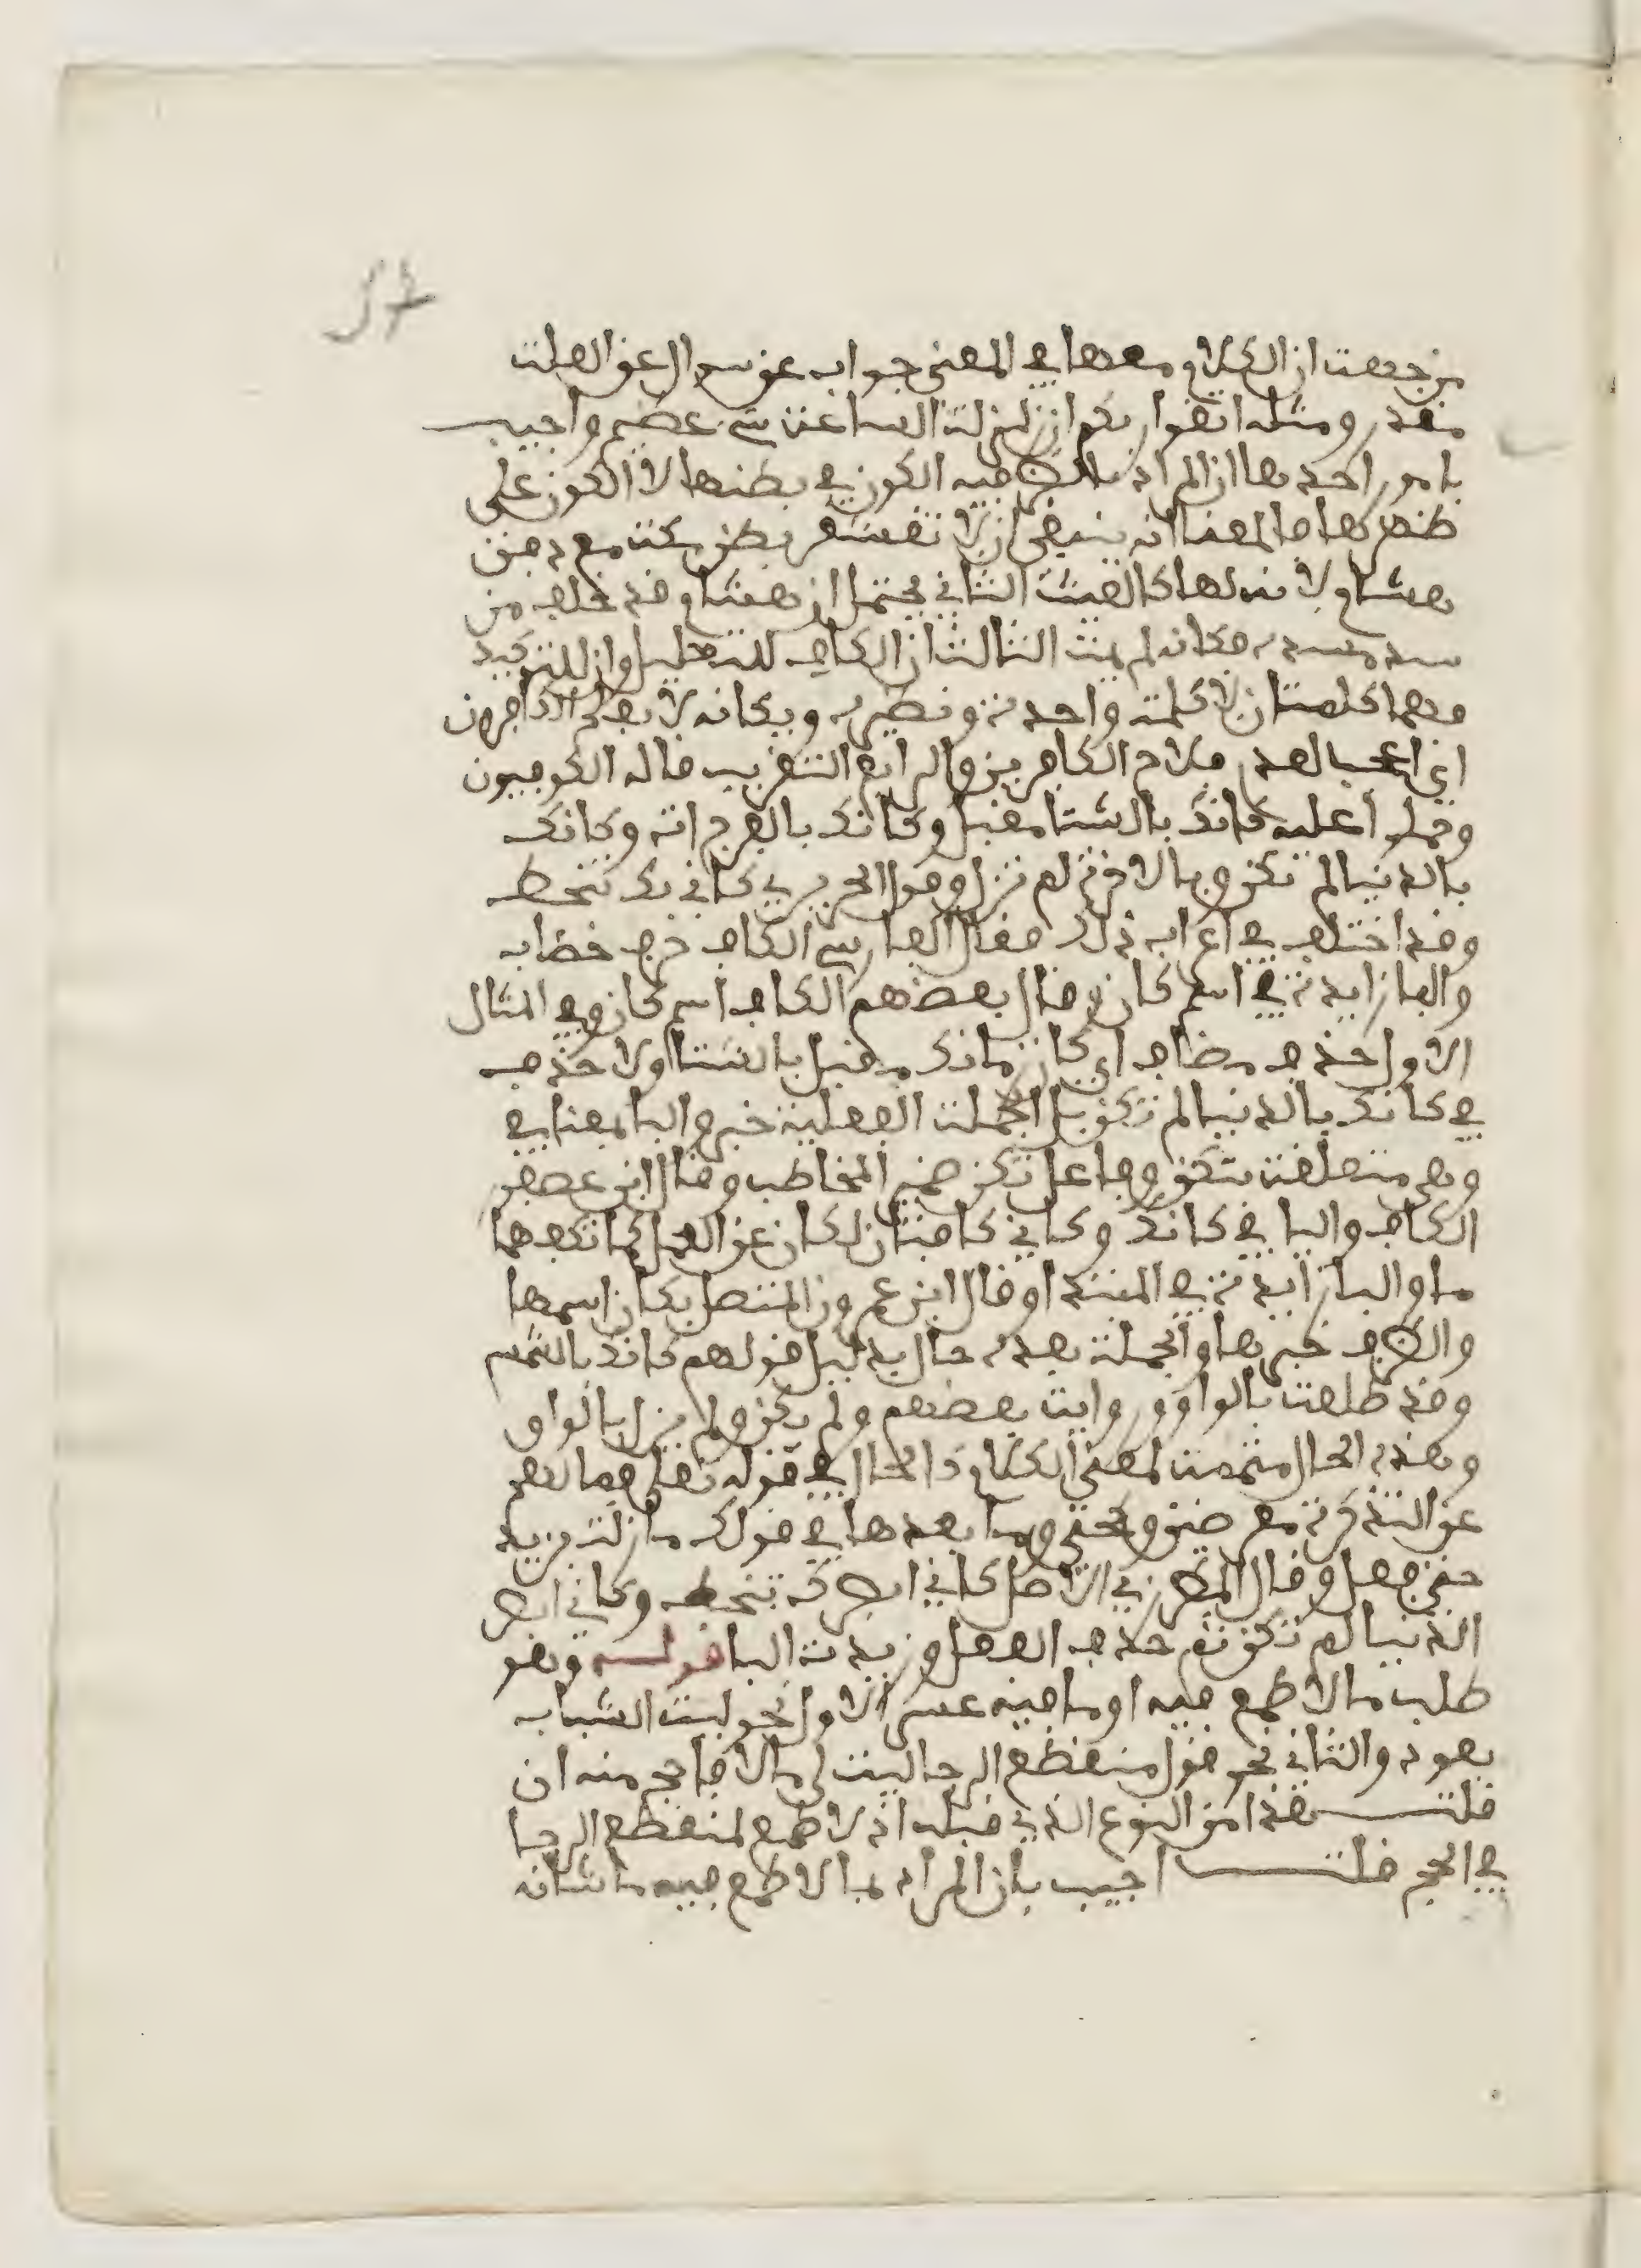 من جهة ان الكلام معها في المعنى جواب عن سوال عن العلة
مقدر ومثله اتقوا ربكم ان زلزلة الساعة شي عظيم واجيب
بامور احدها ان المراد بالظرفية الكون في بطنها لا الكون على
ظهرها فالمعنا انه ينبغي ان لا تقشعر بطن مكة مع دفن
هشام لانه لها كالغيث الثاني يحتمل ان هشام قد خلف من
سد مسده فكانه لم يمت الثالث ان الكاف للتعليل وان للتوكيد
فهما كلمتان لا كلمة واحدة ونظيره ويكانه لا يفلح الكافرون
اي اعجب لعدم فلاح الكافرين والرابع التقريب قاله الكوفيون
وحملوا عليه كانك بالشتا مقبل وكانك بالفرج اته وكانك
بالدنيا لم تكن وبالاخرة لم تزل وقول الحريري كاني بك تنحط
وقد اختلف في اعراب ذلك فقال الفارسي الكاف حرف خطاب
والبا زايدة في اسم كان وقال بعضهم الكاف اسم كان وفي المثال
الاول حذف مضاف اي كان زمانك مقبل بالشتا ولا حذف
في كانك بالدنيا لم تكن بل الجملة الفعلية خبر والبا بمعنا في
وهي متعلقة بتكن وفاعل تكن ضمير المخاطب وقال ابن عصفور
الكاف واليا في كانك وكاني كافتان لكان عن العمل كما تكفهما
ما والبا زايدة في المبتدا وقال ابن عمرون المتصل بكان اسمها
والظرف خبرها والجملة بعده حال بدليل قولهم كانك بالشمس
وقد طلعت بالواو ورواية بعضهم ولم يكن ولم يزل بالواو
وهذه الحال متممة لمعنى الكلام كالحال في قوله تعلى فما لهم
عن التذكرة معرضين وكحتى وما بعدها في قولك ما زلت بزيد
حتى فعل وقال المطرزي الاصل كاني ابصرك تنحط وكاني ابصر
الدنيا لم تكن ثم حذف الفعل وزيدت البا قولـــه وهو
طلب ما لا طمع فيه او ما فيه عسر الاول نحو ليت الشباب
يعود والثاني نحو قول منقطع الرجا ليت لي مالا فاحج منه ان
قلت هذا من النوع الذي قبله اذ لا طمع لمنقطع الرجا
في الحج قلت اجيب بان المراد بما لا طمع فيه ما شانه